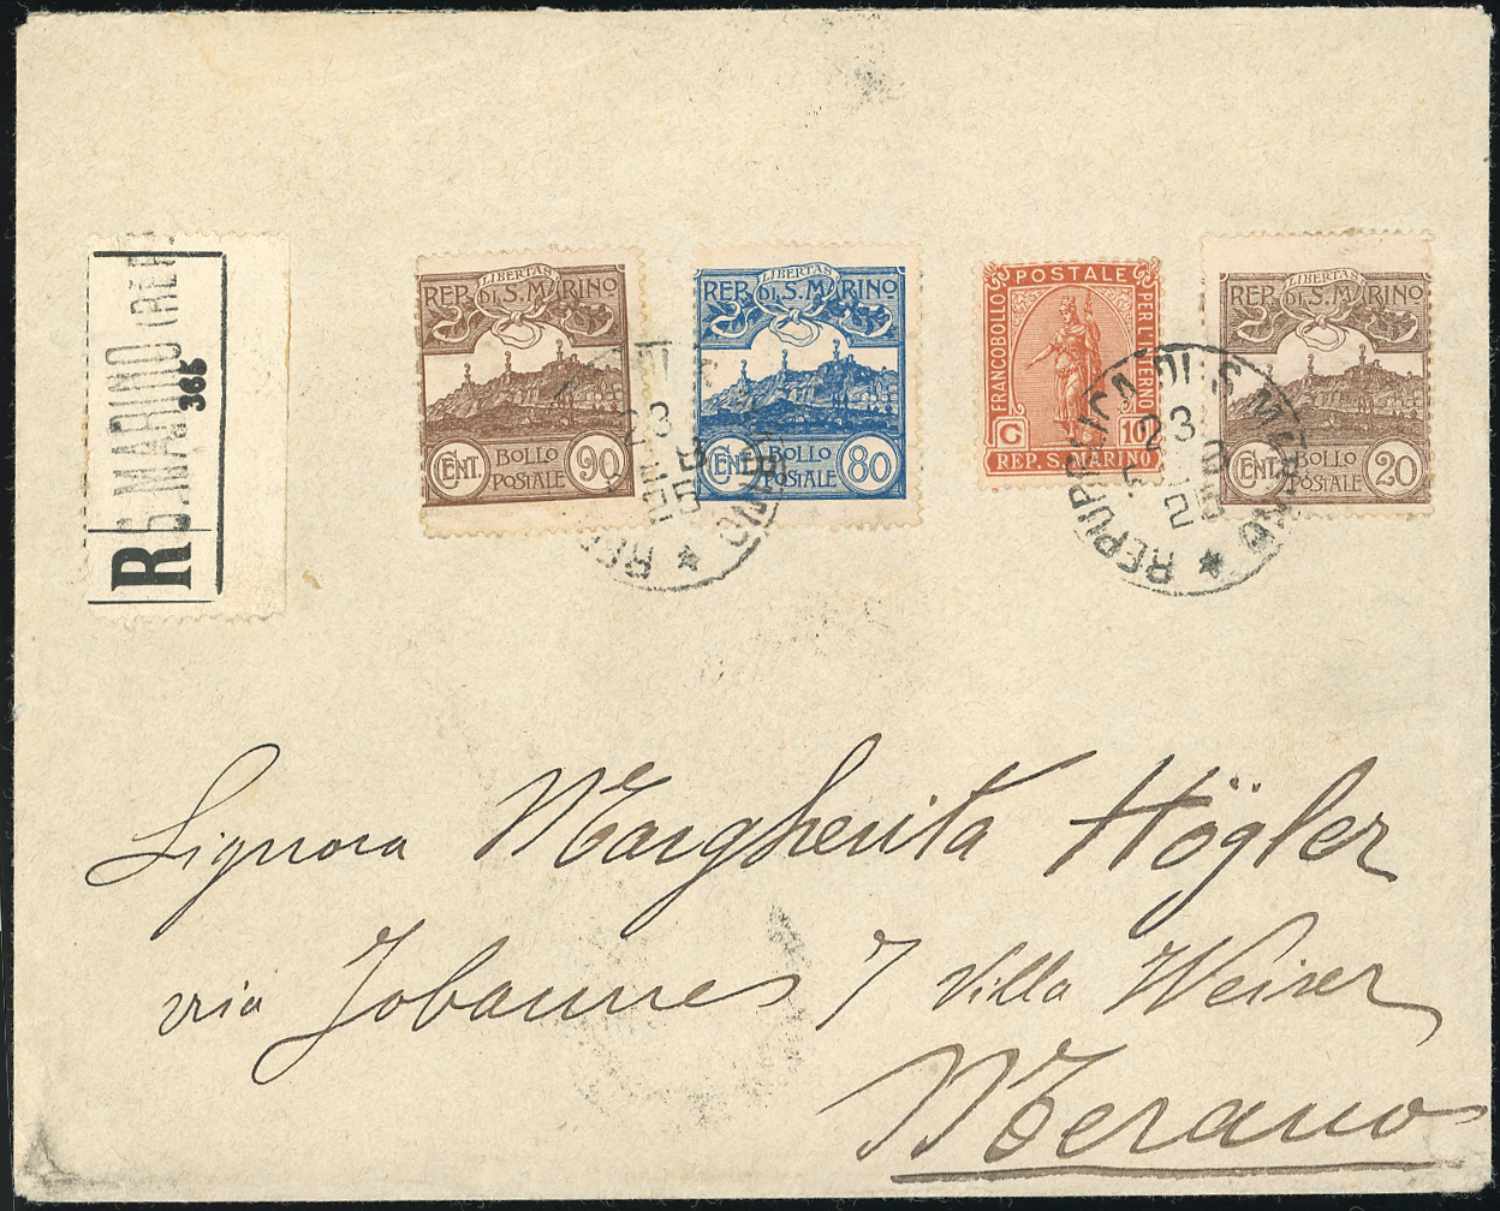 S. MARINO (REP.
365
R
LIBERTAS
REP. DI S. MARINO
CENT. BOLLO POSTALE 90
LIBERTAS
REP. DI S. MARINO
CENT. BOLLO POSTALE 80
POSTALE
FRANCOBOLLO
PER L'INTERNO
C 10
REP. S. MARINO
LIBERTAS
REP. DI S. MARINO
CENT. BOLLO POSTALE 20
23
REPUBBLICA DI S. MARINO
23
Signora Margherita Högler
via Johannes 7 Villa Weiser
Merano